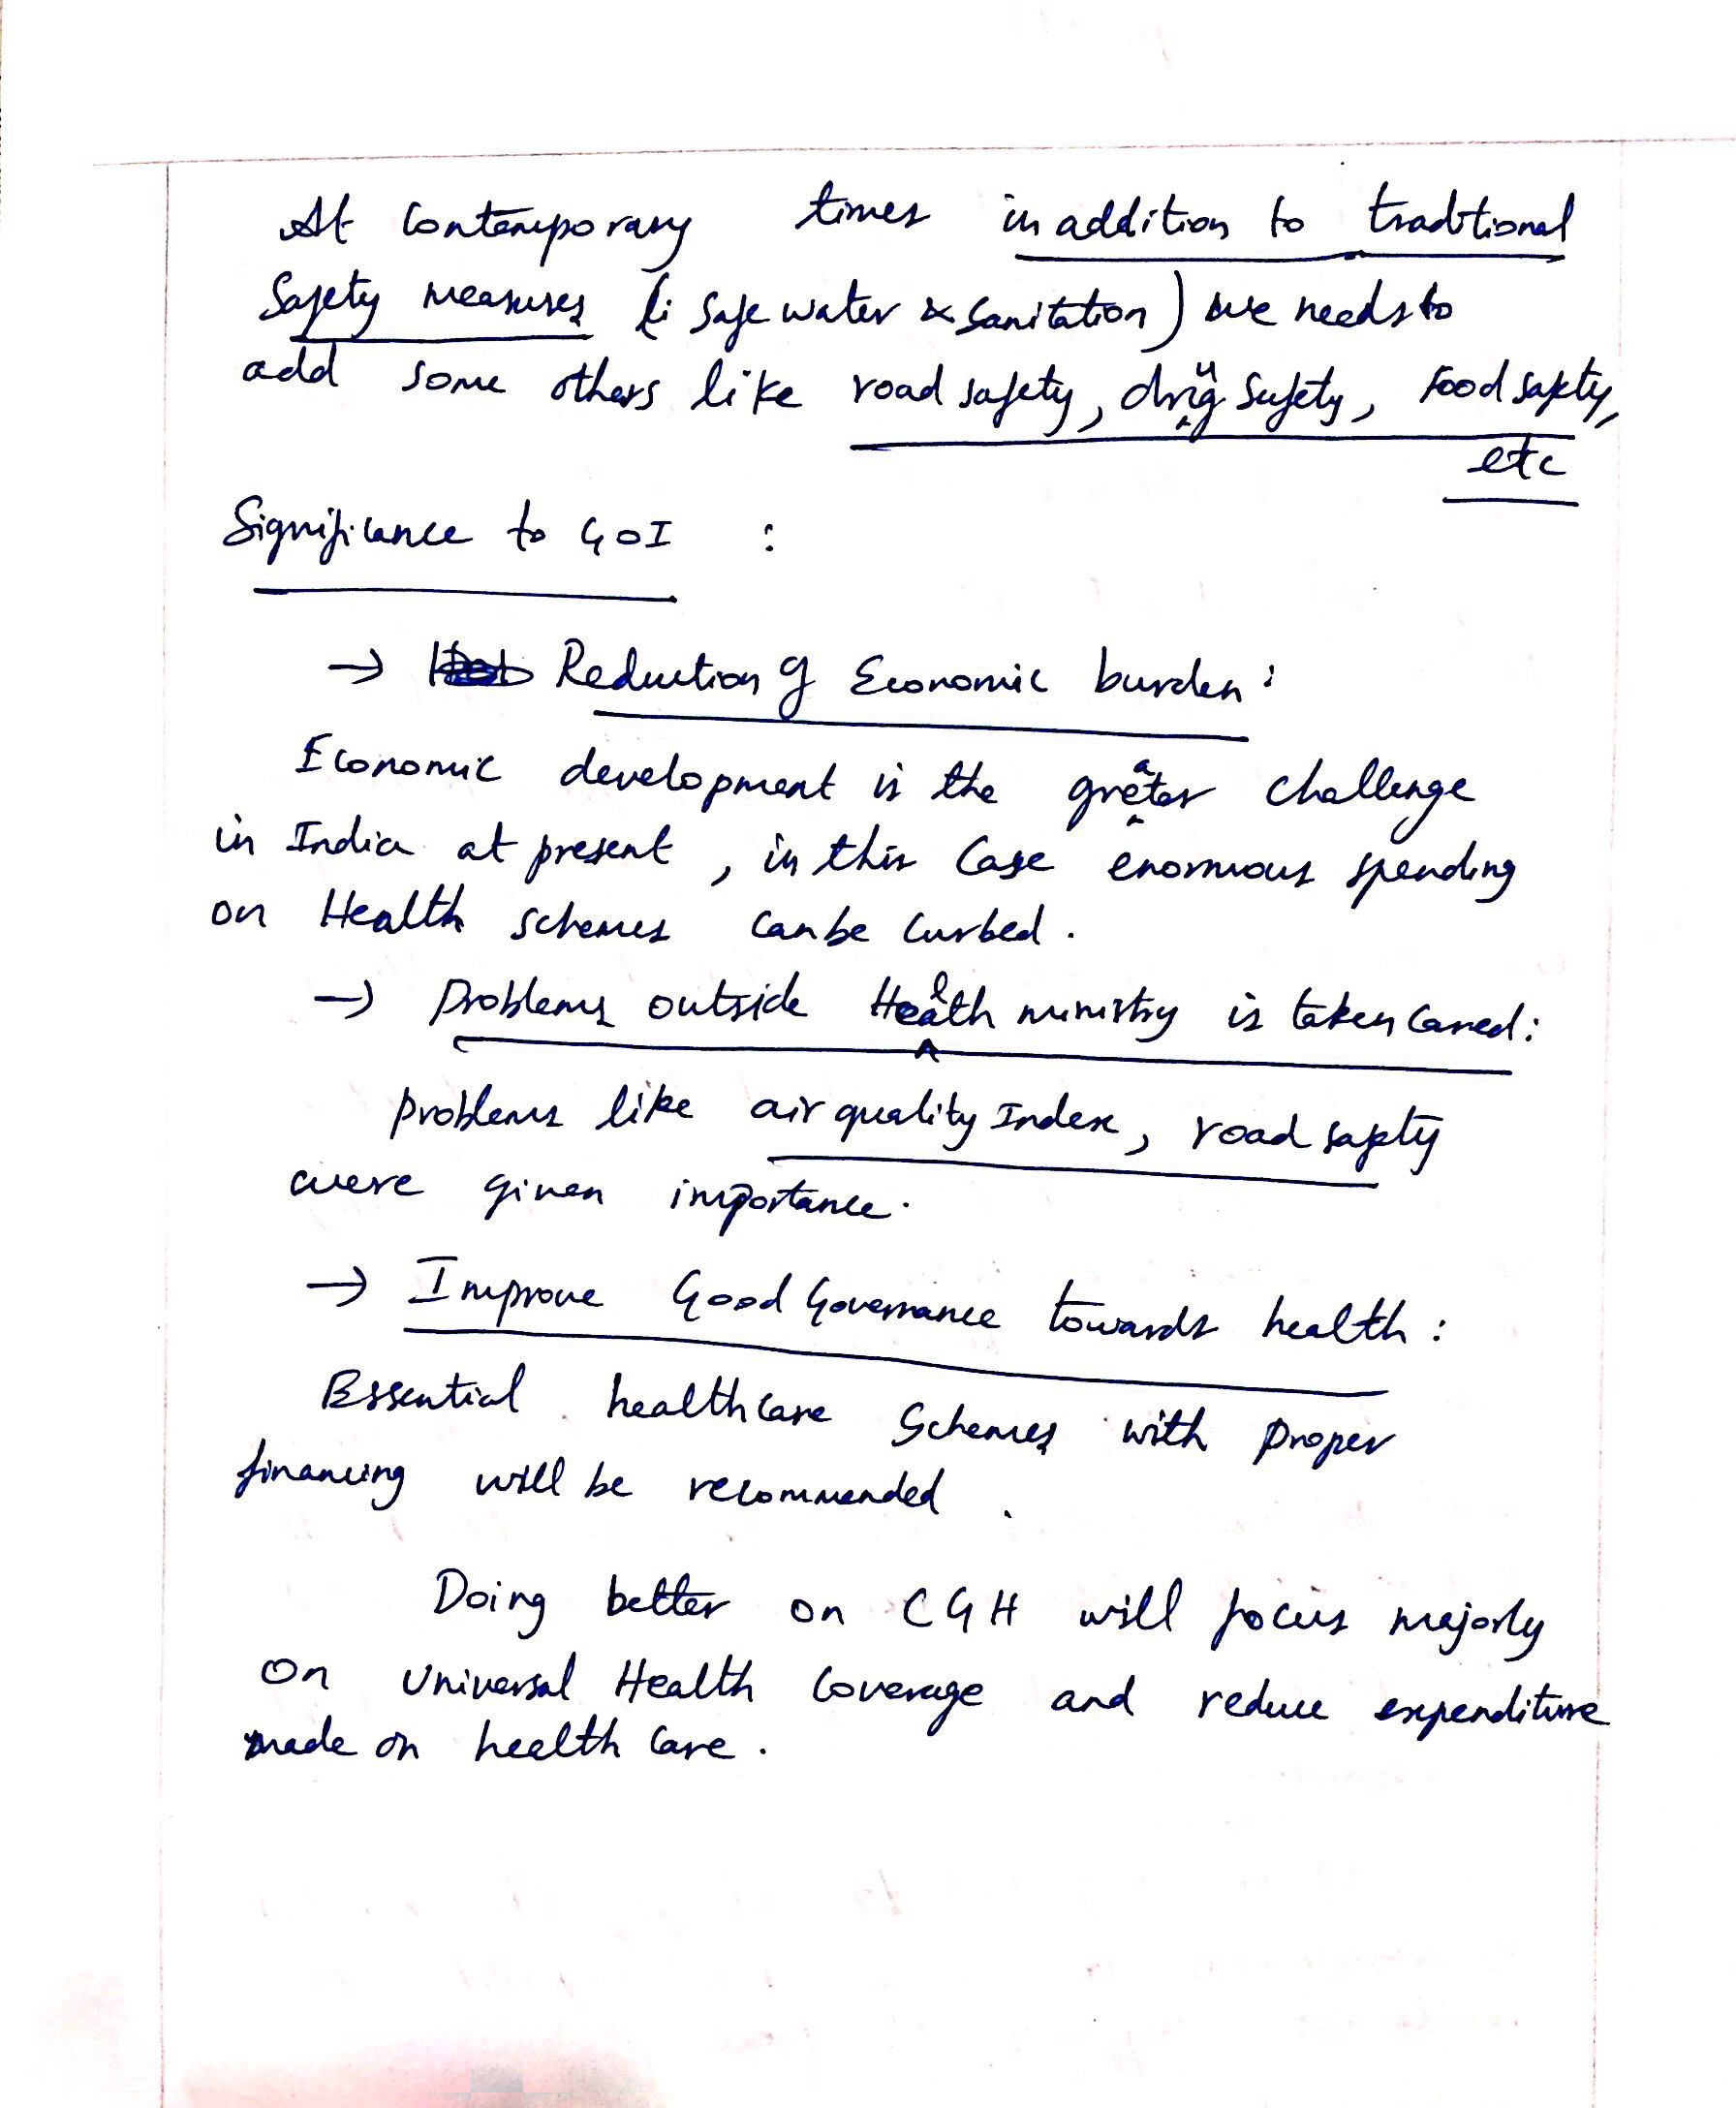 At contemporary times in addition to tradtional
Safety measures (i safe water & sanitation) we needs to
add some others like road safety, drug safety, food safety,
etc
Significance to GOI :
→ Reduction of Economic burden :
Economic development is the greater challenge
in India at present, in this case enormous spending
on Health schemes can be curbed.
→ Problems outside Health ministry is taken cared :
problems like air quality Index, road safety
were given importance.
→ Improve Good Governance towards health :
Essential healthcare Schemes with proper
financing will be recommended .
Doing better on CGH will focus majorly
on Universal Health Coverage and reduce expenditure
made on health care .